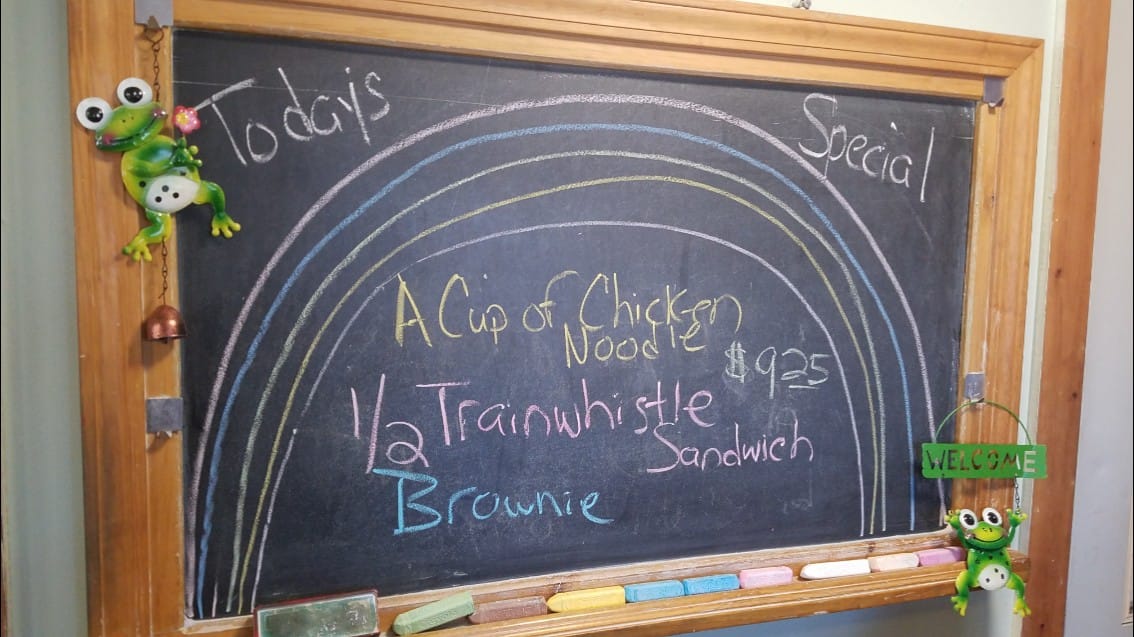 Today's Special
A Cup of Chicken
Noodle
$9.25
1/2 Trainwhistle
Sandwich
Brownie
WELCOME